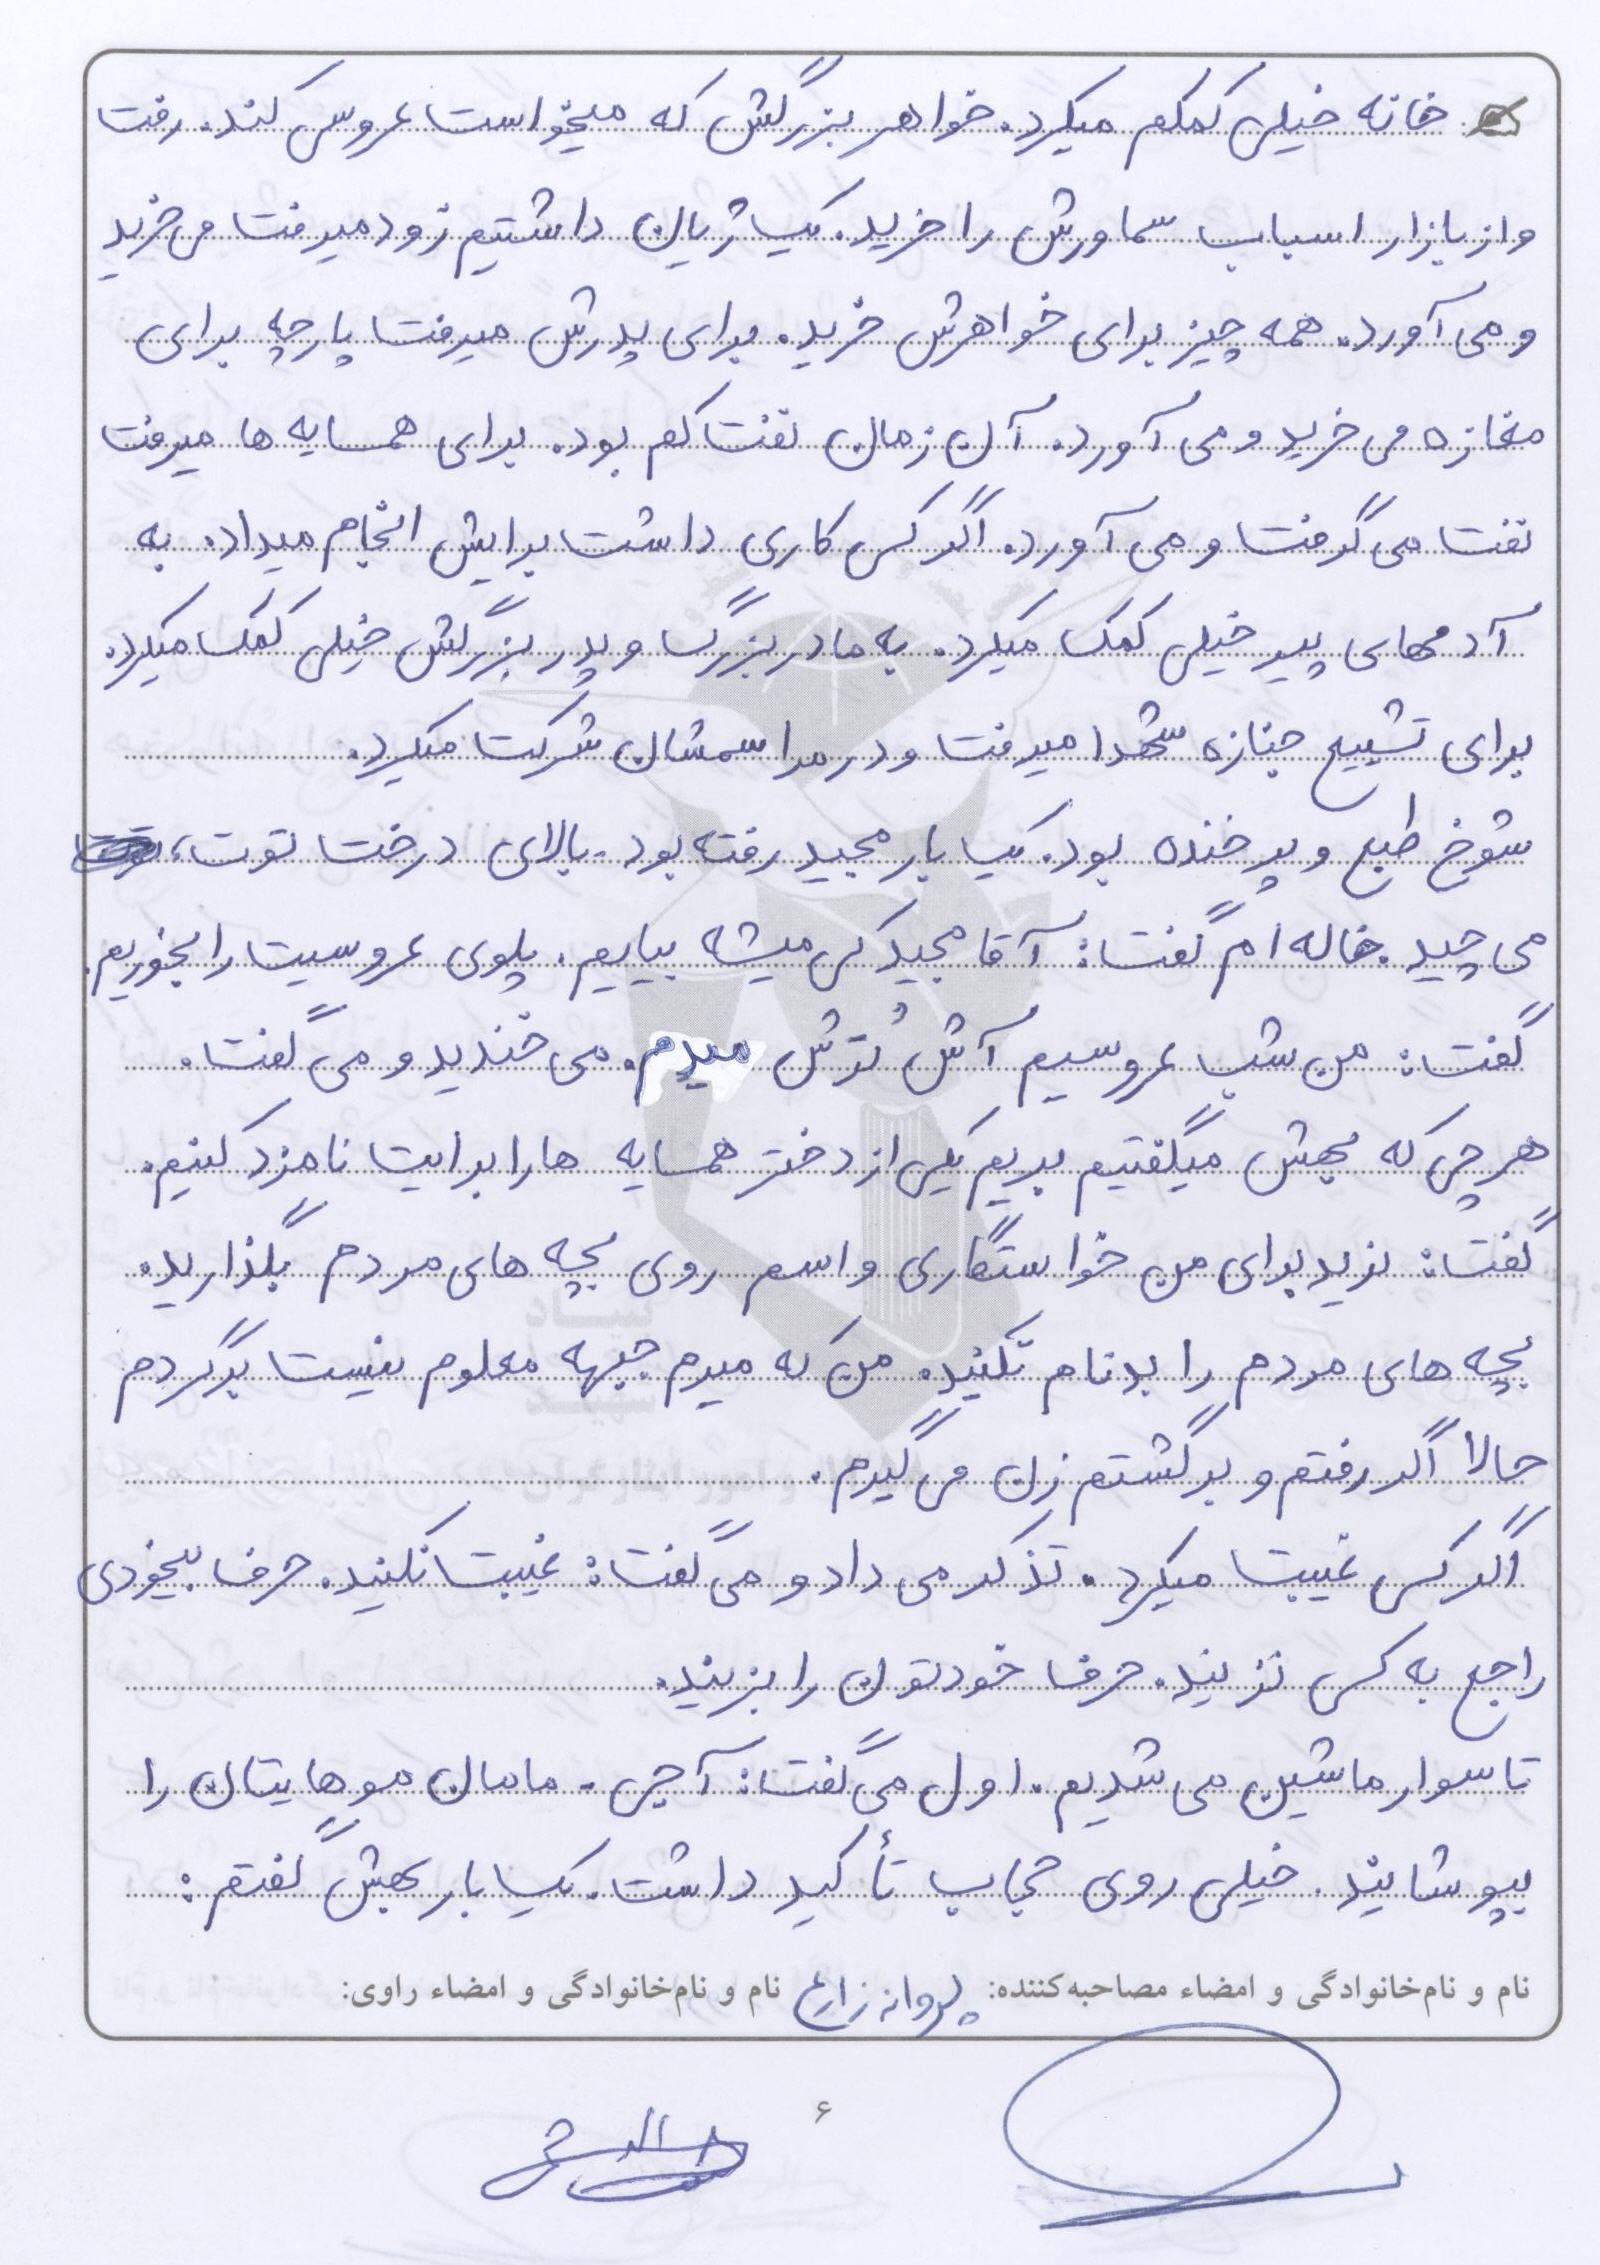 خانه خیلی کمکم میکرد. خواهر بزرگش که میخواست عروسی کند. رفت
و از بازار اسباب سماورش را خرید. یک ژیان داشتیم زود میرفت می خرید
و می آورد. همه چیز برای خواهرش خرید. برای پدرش میرفت پارچه برای
مغازه می خرید و می آورد. آن زمان نفت کم بود. برای همسایه ها میرفت
نفت می گرفت و می آورد. اگر کسی کاری داشت برایش انجام میداد. به
آدمهای پیر خیلی کمک میکرد. به مادر بزرگ و پدر بزرگش خیلی کمک میکرد.
برای تشییع جنازه شهدا میرفت و در مراسمشان شرکت میکرد.
شوخ طبع و پر خنده بود. یک بار مجید رفته بود. بالای درخت توت،
می چید. خاله ام گفت: آقا مجید کی میشه بیاییم. پلوی عروسیت را بخوریم.
گفت: من شب عروسیم آش تُرش میدم. می خندید و می گفت.
هر چی که بهش میگفتیم بریم یکی از دختر همسایه ها را برایت نامزد کنیم.
گفت: نرید برای من خواستگاری و اسم روی بچه های مردم بگذارید.
بچه های مردم را بدنام نکنید. من که میرم جبهه معلوم نیست برگردم
حالا اگر رفتم و برگشتم زن می گیرم.
اگر کسی غیبت میکرد. تذکر می داد و می گفت: غیبت نکنید. حرف بیخودی
راجع به کسی نزنید. حرف خودتون را بزنید.
تا سوار ماشین می شدیم. اول می گفت: آجی - مامان موهایتان را
بپوشانید. خیلی روی حجاب تأکید داشت. یک بار بهش گفتم:
نام و نام‌خانوادگی و امضاء مصاحبه‌کننده: پروانه زارع نام و نام‌خانوادگی و امضاء راوی:
۶